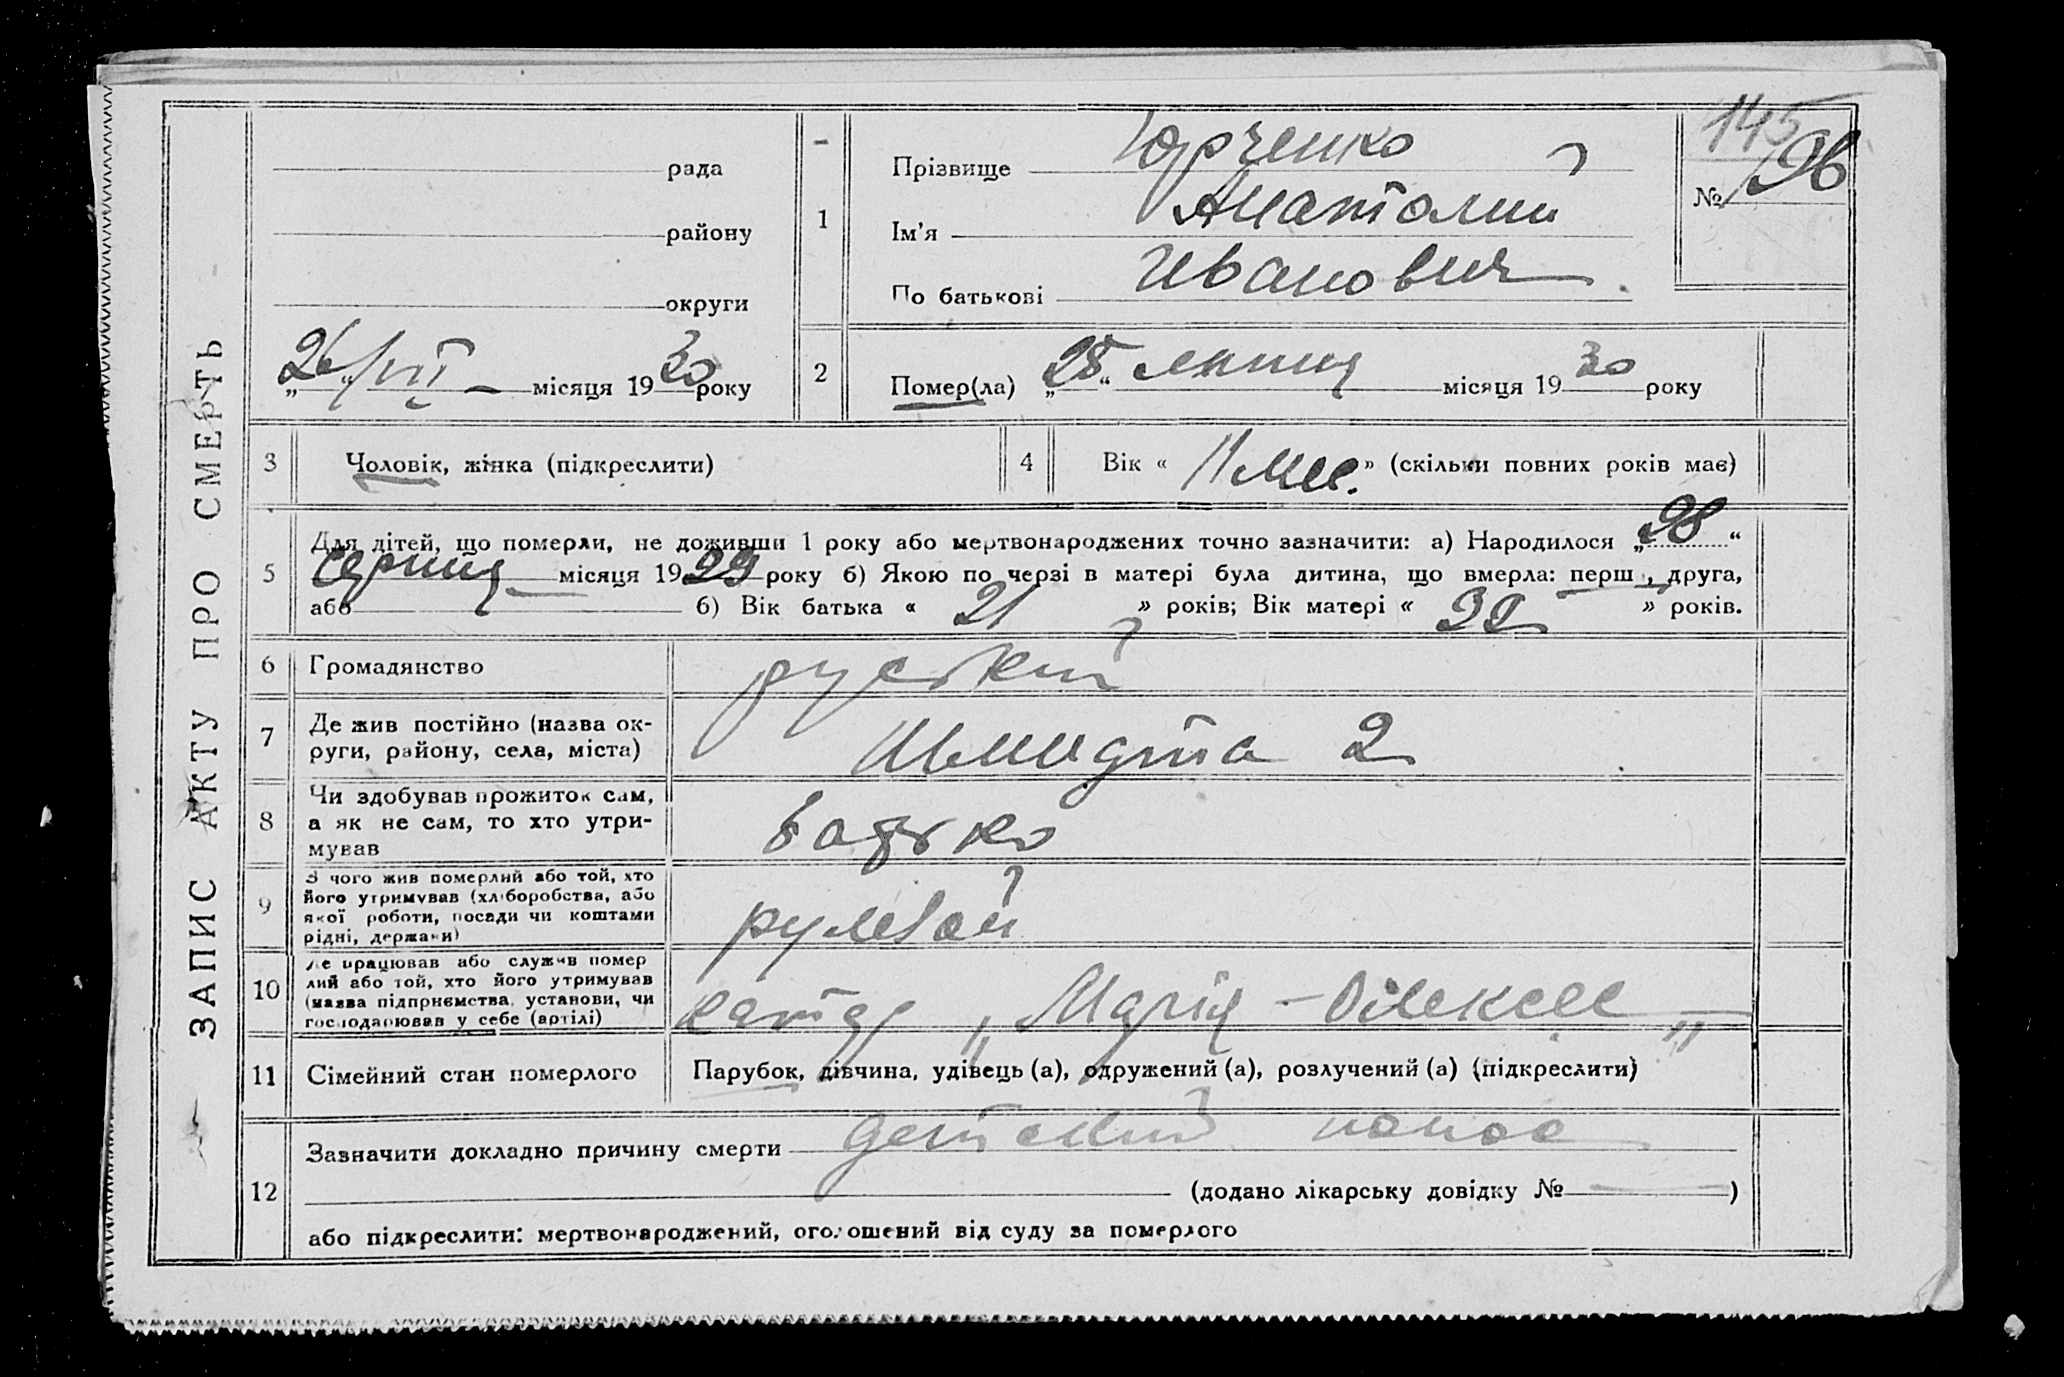 ЗАПИС АКТУ ПРО СМЕРТЬ
рада
району
округи
„26“ VII місяця 1930 року
1
Прізвище Юрченко
Ім'я Анатолий
По батькові Иванович
145
№ 96
2
Помер(ла) „25“ липня місяця 1930 року
3
Чоловік, жінка (підкреслити)
4
Вік « 11 мес. » (скільки повних років має)
5
Для дітей, що померли, не доживши 1 року або мертвонароджених точно зазначити: а) Народилося „28“
серпня місяця 1929 року б) Якою по черзі в матері була дитина, що вмерла: перш , друга,
або б) Вік батька « 21 » років; Вік матері « » років.
6
Громадянство
руський
7
Де жив постійно (назва ок-
руги, району, села, міста)
Шмидта 2
8
Чи здобував прожиток сам,
а як не сам, то хто утри-
мував
батько
9
З чого жив померлий або той, хто
його утримував (хліборобства, або
якої роботи, посади чи коштами
рідні, держави)
рулевой
10
Де працював або служив помер
лий або той, хто його утримував
(назва підприємства, установи, чи
господарював у себе (артілі)
катер „Марія-
11
Сімейний стан померлого
Парубок, дівчина, удівець (а), одружений (а), розлучений (а) (підкреслити)
12
Зазначити докладно причину смерти детский понос
(додано лікарську довідку № )
або підкреслити: мертвонароджений, оголошений від суду за померлого